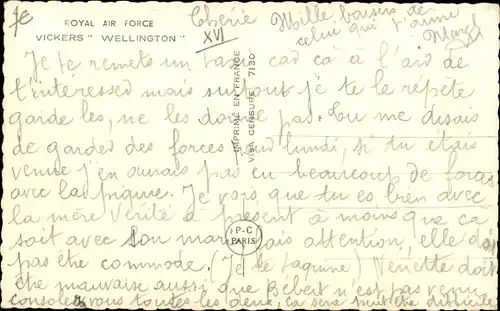 7c
ROYAL AIR FORCE
VICKERS " WELLINGTON "
Chérie
XVI
Mille baisers de
celui qui t'aime
Marcel
Je te remets un cad ça à l'air de
t'intéresser mais surtout je te le répète
garde les, ne les donne pas. Tu me disais
de garder des forces pour lundi, si tu étais
venue j'en aurais pas eu beaucoup de forces
avec la piqure. Je vois que tu es bien avec
la mère Vérité à présent à moins que ça
soit avec son mari mais attention, elle doit
pas être commode. (Je te taquine) Venette doit
être mauvaise aussi que Bébert n'est pas venu
consolez vous toutes les deux, ça sera peut être difficile
IMPRIMÉ EN FRANCE
VISA CENSURE 7130
P-C
PARIS